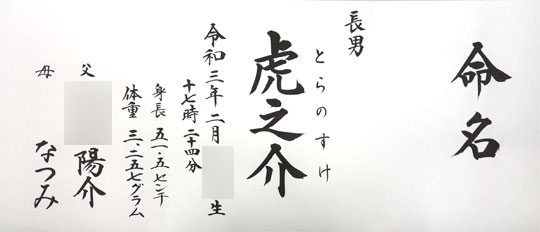 命名
長男
とらのすけ
虎之介
令和三年二月 生
十七時二十四分
身長 五一・五センチ
体重 三、二五七グラム
父 陽介
母 なつみ